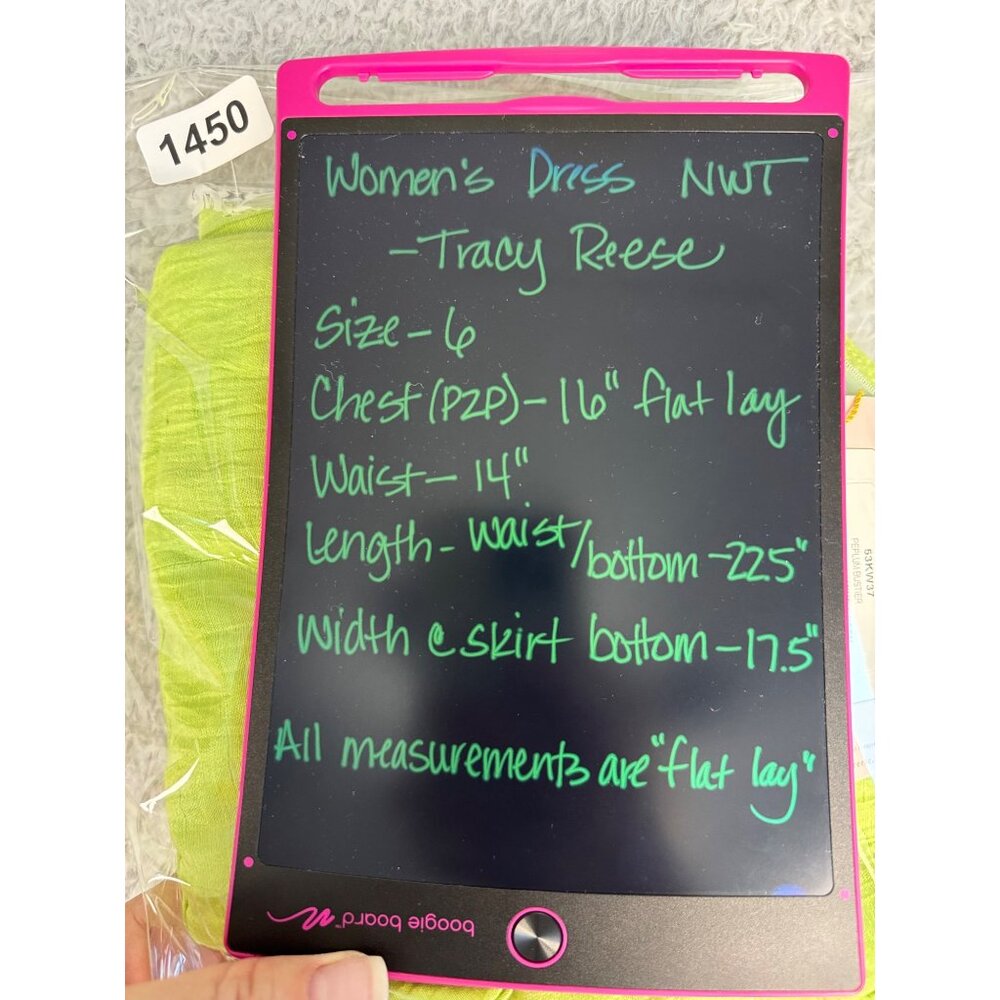 1450
Women's Dress NWT
-Tracy Reese
Size-6
Chest (P2P)-16" flat lay
Waist-14"
Length-Waist/bottom-22.5"
Width @ skirt bottom-17.5"
All measurements are "flat lay"
boogie board™
53KW37
PEPLUM BUSTIER